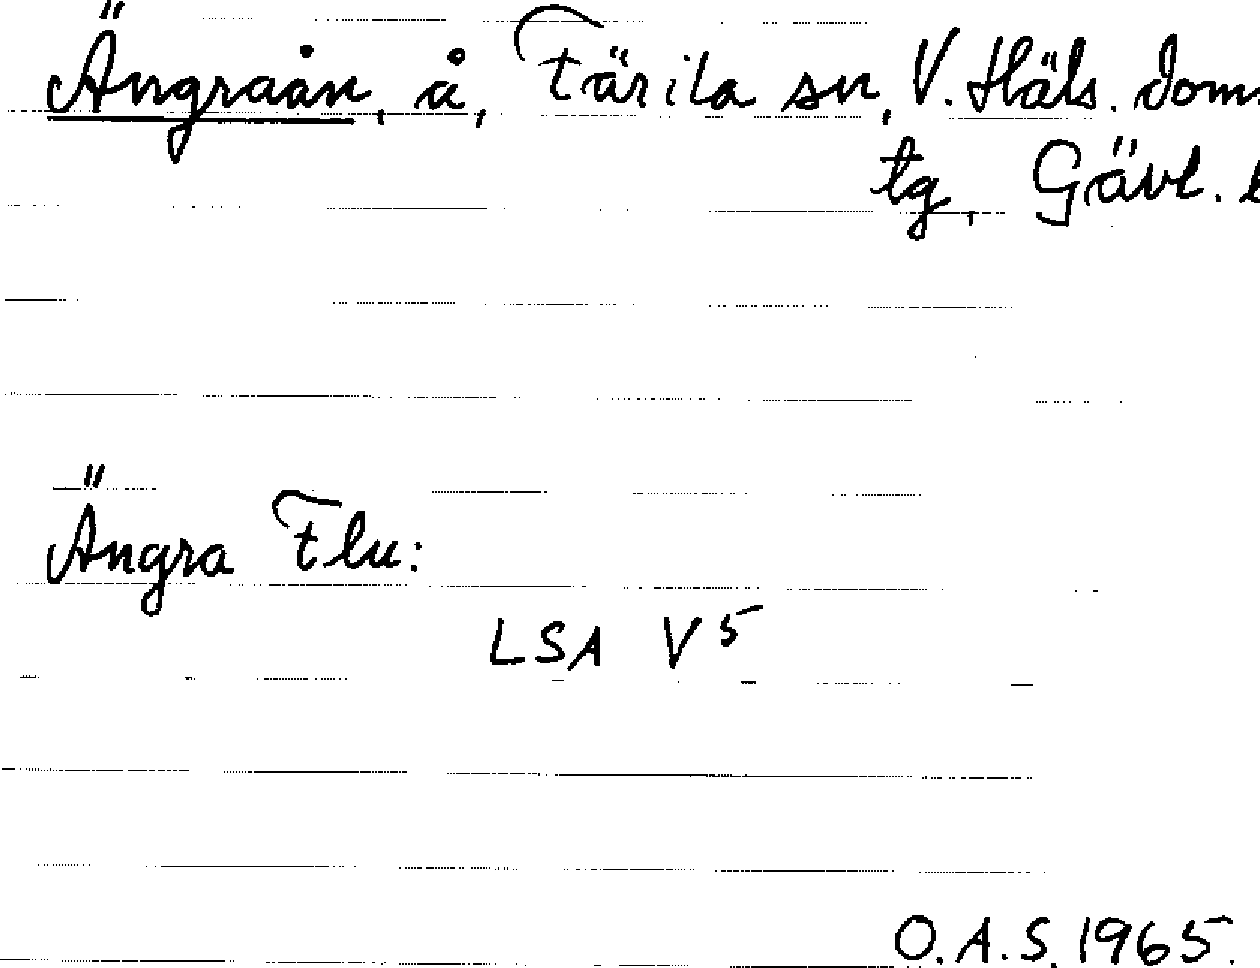 Ängraån, å, Färila sn, V. Häls. doms
tg, Gävl. l
Ängra Flu:
LSA V5
O.A.S. 1965.